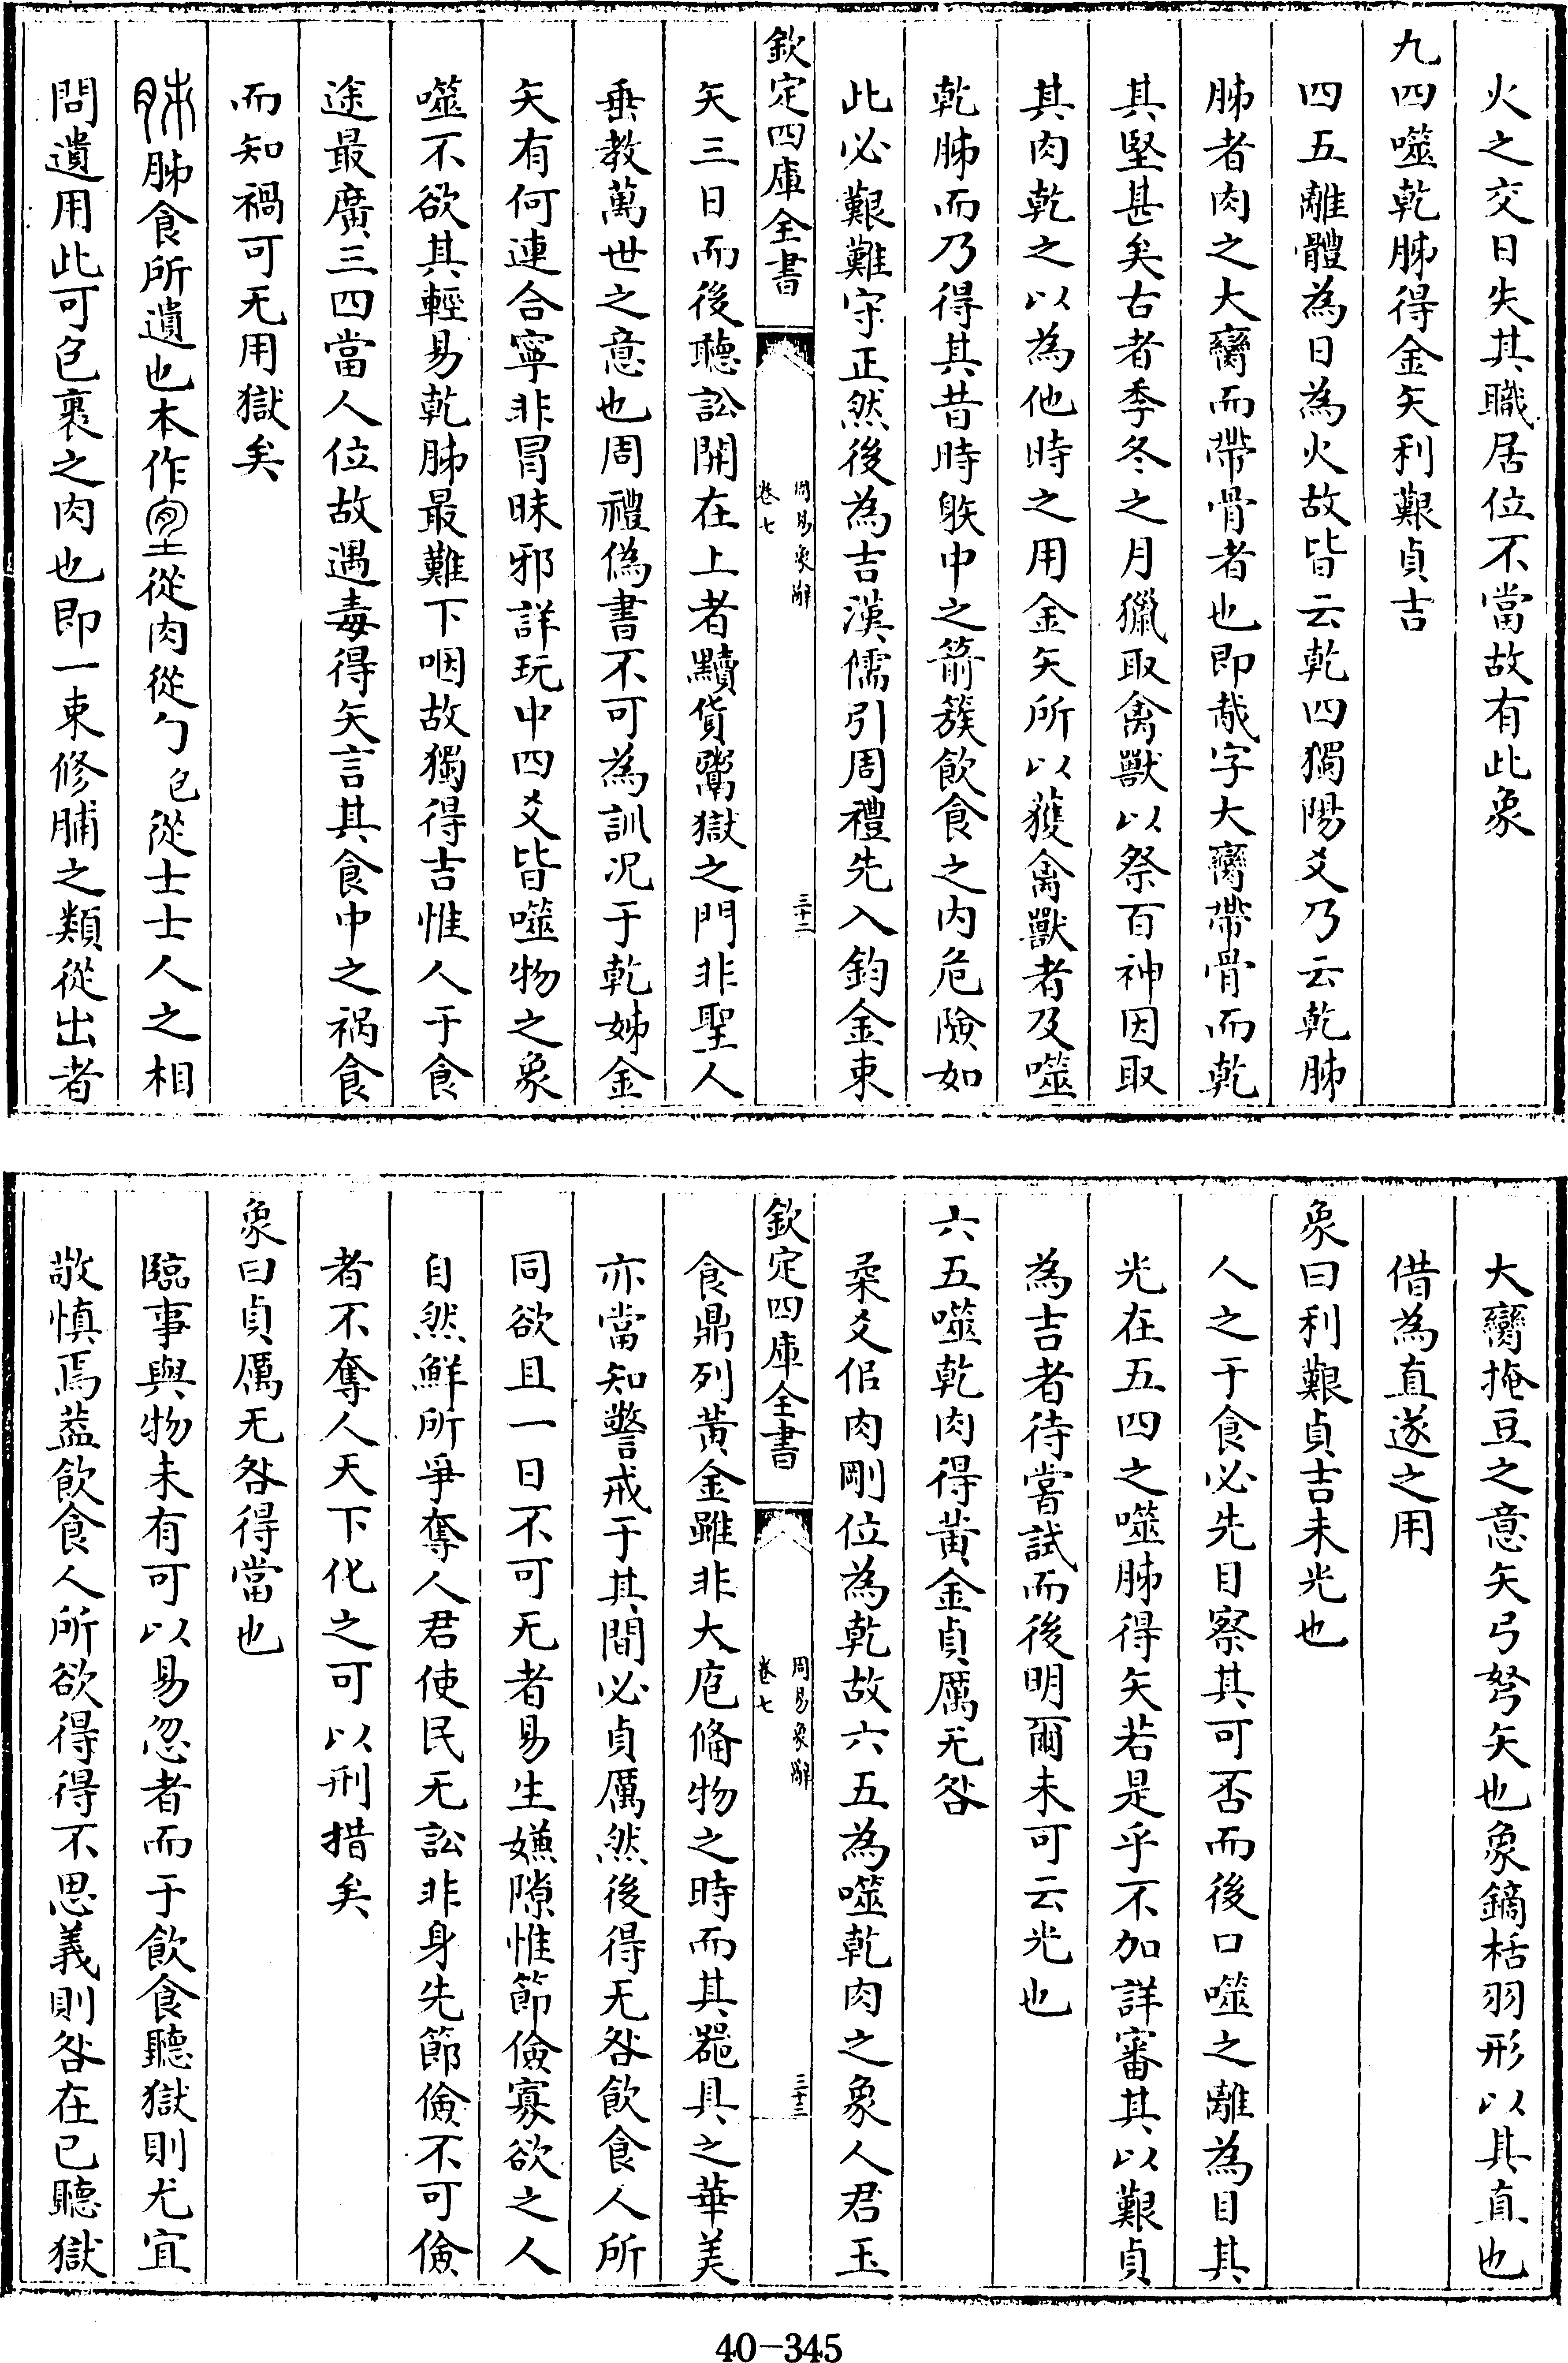 火之交日失其職居位不當故有此象
九四噬乾胏得金矢利艱貞吉
四五離體為日為火故皆云乾四獨陽爻乃云乾胏
胏者肉之大臠而帶骨者也即胾字大臠帶骨而乾
其堅甚矣古者季冬之月獵取禽獸以祭百神因取
其肉乾之以為他時之用金矢所以獲禽獸者及噬
乾胏而乃得其昔時䠶中之箭簇飲食之内危險如
此必艱難守正然後為吉漢儒引周禮先入鈞金束
欽定四庫全書
周易象辭
卷七
三十二
矢三日而後聽訟開在上者黷貨鬻獄之門非聖人
垂教萬世之意也周禮偽書不可為訓况于乾姊金
矢有何連合寧非冒昧邪詳玩中四爻皆噬物之象
噬不欲其輕易乾胏最難下咽故獨得吉惟人于食
途最廣三四當人位故遇毒得矢言其食中之禍食
而知禍可无用獄矣
胏食所遺也本作從肉從勹包從士士人之相
問遺用此可包裹之肉也即一束修脯之類從出者
大臠掩豆之意矢弓弩矢也象鏑栝羽形以其直也
借為直遂之用
象曰利艱貞吉未光也
人之于食必先目察其可否而後口噬之離為目其
光在五四之噬胏得矢若是乎不加詳審其以艱貞
為吉者待嘗試而後明爾未可云光也
六五噬乾肉得黄金貞厲无咎
柔爻佀肉剛位為乾故六五為噬乾肉之象人君玉
欽定四庫全書
周易象辭
卷七
三十三
食鼎列黄金雖非大庖備物之時而其器具之華美
亦當知警戒于其間必貞厲然後得无咎飲食人所
同欲且一日不可无者易生嫌隙惟節儉寡欲之人
自然鮮所爭奪人君使民无訟非身先節儉不可儉
者不奪人天下化之可以刑措矣
象曰貞厲无咎得當也
臨事與物未有可以易忽者而于飲食聽獄則尤宜
敬慎焉葢飲食人所欲得得不思義則咎在已聽獄
40-345